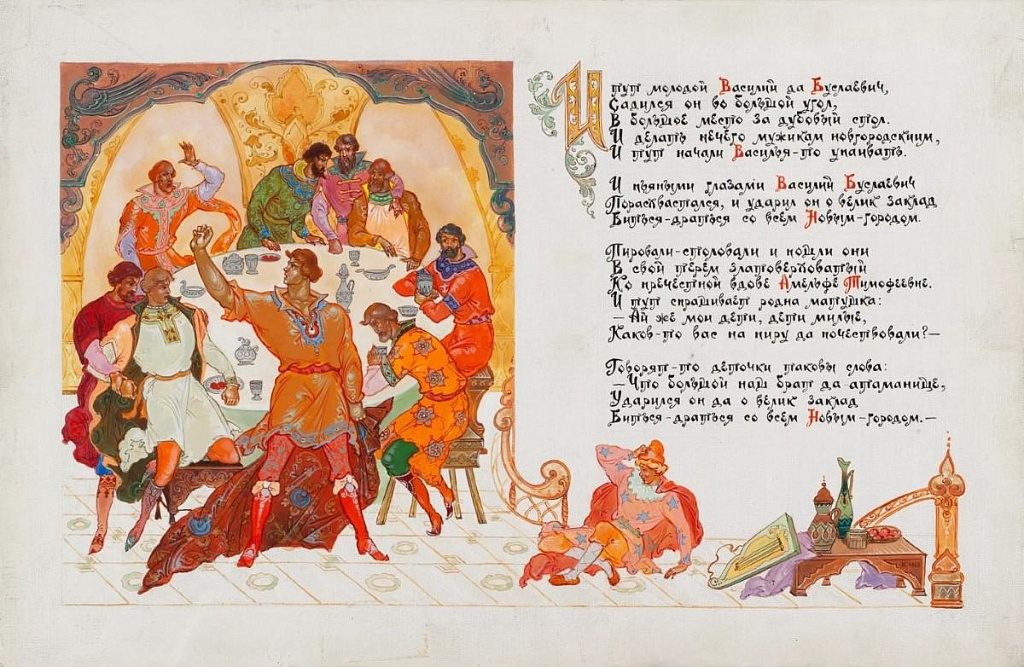 И тут молодой Василий да Буслаевич,
Садился он во большой угол,
В большое место за дубовый стол.
И делать нечего мужикам новгородскиим,
И тут начали Василья-то упаивать.
И пьяными глазами Василий Буслаевич
Порасхвастался, и ударил он о велик заклад
Биться-драться со всем Новым-городом.
Пировали-столовали и пошли они
В свой терем златоверховатый
Ко пречестной вдове Амельфе Тимофеевне.
И тут спрашивает родна матушка:
— Ай же мои дети, дети милые,
Каков-то вас на пиру да почествовали?—
Говорят-то деточки таковы слова:
—Что большой наш брат да атаманище,
Ударился он да о велик заклад
Биться-драться со всем Новым-городом.—